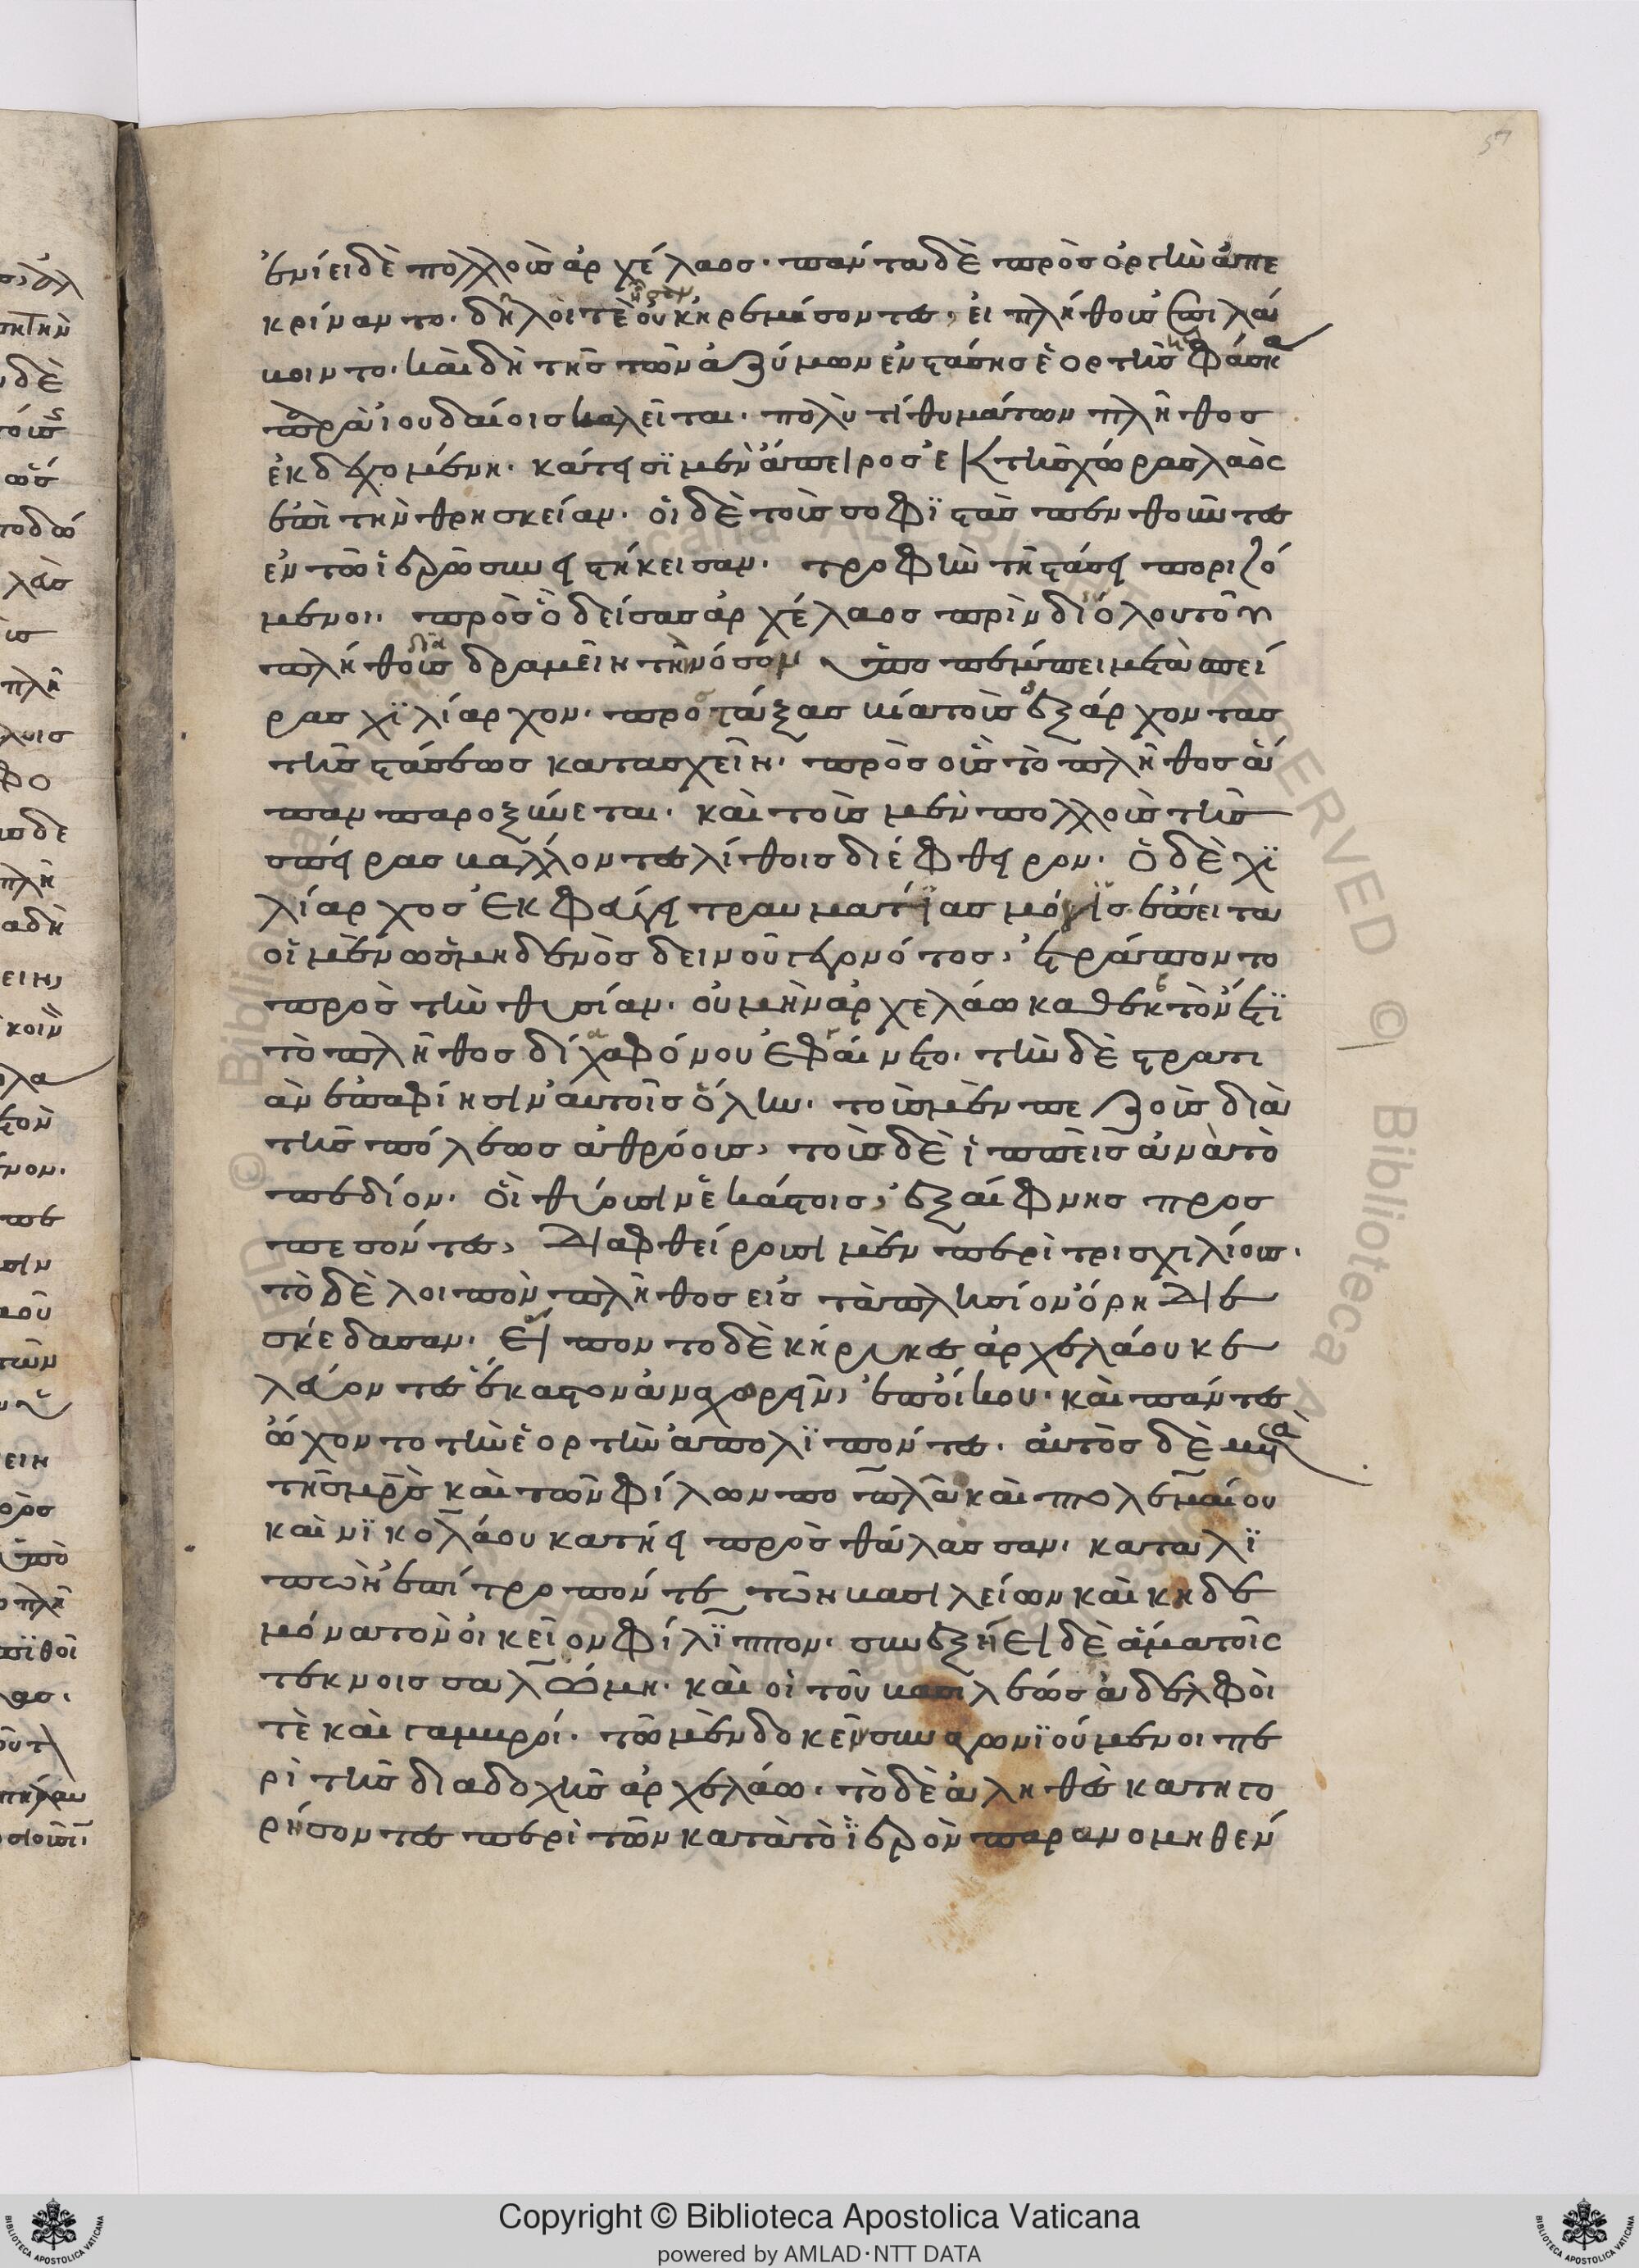 ἐνίει δὲ πολλοὺς ἀρχέλαος· πάντα δὲ πρὸς ὀργὴν ἀπε
κρίναντο· δῆλοί τε ἦσαν οὐκ ἠρεμήσοντες, εἰ πλήθους ἐπιλά
βοιντο· καὶ δὴ τῆς τῶν ἀζύμων ἐνστάσης ἑορτῆς φάσκα
παρὰ ἰουδαίοις καλεῖται· πολύ τι θυμάτων πλῆθος
ἐκδεχομένη· κάτεισι μὲν ἄπειρος ἐκ τῆς χώρας λαὸς
ἐπὶ τὴν θρησκείαν· οἱ δὲ τοὺς σοφιστὰς πενθοῦντες
ἐν τῶ ἱερῶ συνειστήκεισαν· τροφὴν τῆ στάσει ποριζό
μενοι· πρὸς ὃ δείσας ἀρχέλαος πρὶν δι' ὅλου τοῦ
πλήθους διαδραμεῖν τὴν νόσον, ὑποπέμπει μετὰ σπεί
ρας χιλίαρχον· προστάξας βία τοὺς ἐξάρχοντας
τῆς στάσεως κατασχεῖν· πρὸς οὓς τὸ πλῆθος ἅ
παν παροξύνεται· καὶ τοὺς μὲν πολλοὺς τῆς
σπείρας βάλλοντες λίθοις διέφθειρον· ὁ δὲ χι
λίαρχος ἐκφεύγει τραυματίας μόγις· ἔπειτα
οἱ μὲν ὡς μηδενὸς δεινοῦ γεγονότος, ἐτράποντο
πρὸς τὴν θυσίαν· οὐ μὴν ἀρχελάω καθεκτὸν ἔτι
τὸ πλῆθος δίχα φόνου ἐφαίνετο· τὴν δὲ στρατι
ὰν ἐπαφίησιν αὐτοῖς ὅλην· τοὺς μὲν πεζοὺς διὰ
τῆς πόλεως ἀθρόους, τοὺς δὲ ἱππεῖς ἀνὰ τὸ
πεδίον· οἳ θύουσιν ἑκάστοις, ἐξαίφνης προσ
πεσόντες, διαφθείρουσι μὲν περὶ τρισχιλίους·
τὸ δὲ λοιπὸν πλῆθος εἰς τὰ πλησίον ὄρη διε
σκέδασαν· εἵποντο δὲ κήρυκες ἀρχελάου κε
λεύοντες ἕκαστον ἀναχωρεῖν ἐπ' οἴκου· καὶ πάντες
ὤχοντο τὴν ἑορτὴν ἀπολιπόντες· αὐτὸς δὲ μετὰ
τῆς μρς καὶ τῶν φίλων ποπλᾶ καὶ πτολεμαίου
καὶ νικολάου κατήει πρὸς θάλασσαν· καταλι
πὼν ἐπίτροπόν τε τῶν βασιλείων καὶ κηδε
μόνα τῶν οἰκείων φίλιππον· συνεξήει δὲ ἅμα τοῖς
τέκνοις σαλώμη· καὶ οἱ τοῦ βασιλέως ἀδελφοί
τε καὶ γαμβροί· τῶ μὲν δοκεῖν συναγωνιούμενοι πε
ρὶ τῆς διαδοχῆς ἀρχελάω· τὸ δὲ ἀληθὲς κατηγο
ρήσοντες περὶ τῶν κατὰ τὸ ἱερὸν παρανομηθέν
Copyright © Biblioteca Apostolica Vaticana
powered by AMLAD·NTT DATA